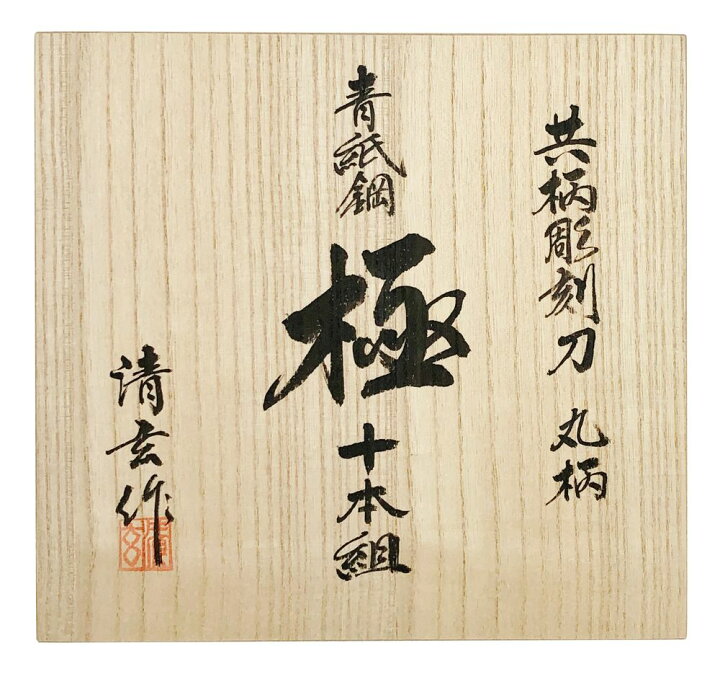 共柄彫刻刀 丸柄
青紙鋼
極
十本組
清玄作
清玄